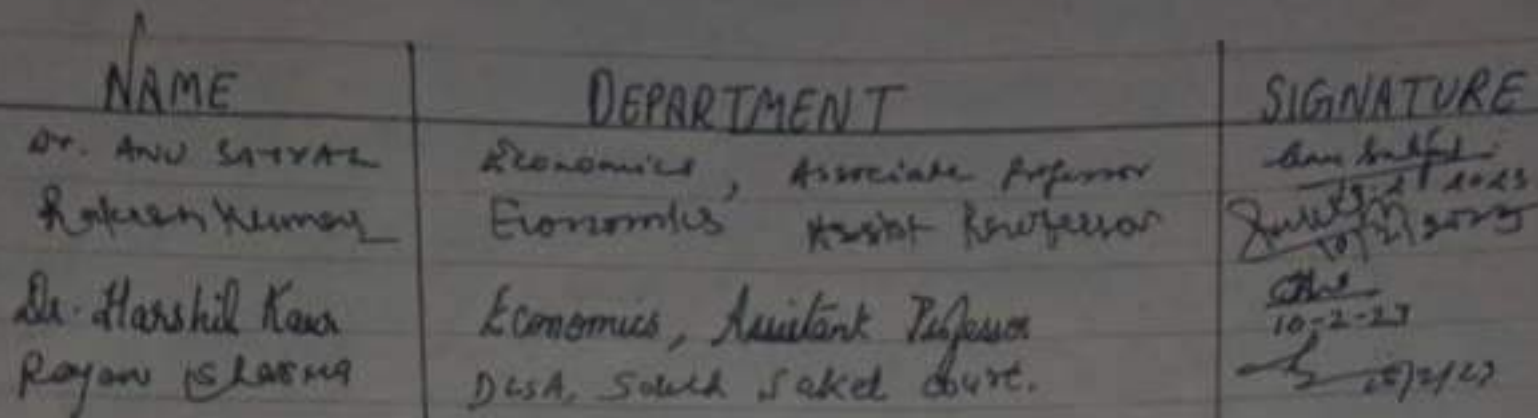 NAME DEPARTMENT SIGNATURE
Dr. ANU SATYAL Economics, Associate Professor
Rakesh Kumar Economics Assist Professor
Dr. Harshil Kaur Economics, Assistant Professor
10-2-23
Rajan Sharma DLSA, South Saket Court.